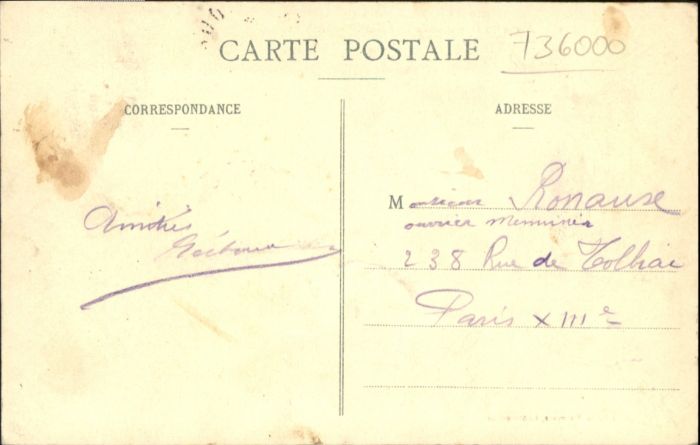 CARTE POSTALE
736000
CORRESPONDANCE
ADRESSE
Amitiés
Monsieur Ronause
ouvrier menuisier
238 Rue de Tolbiac
Paris XIIIe